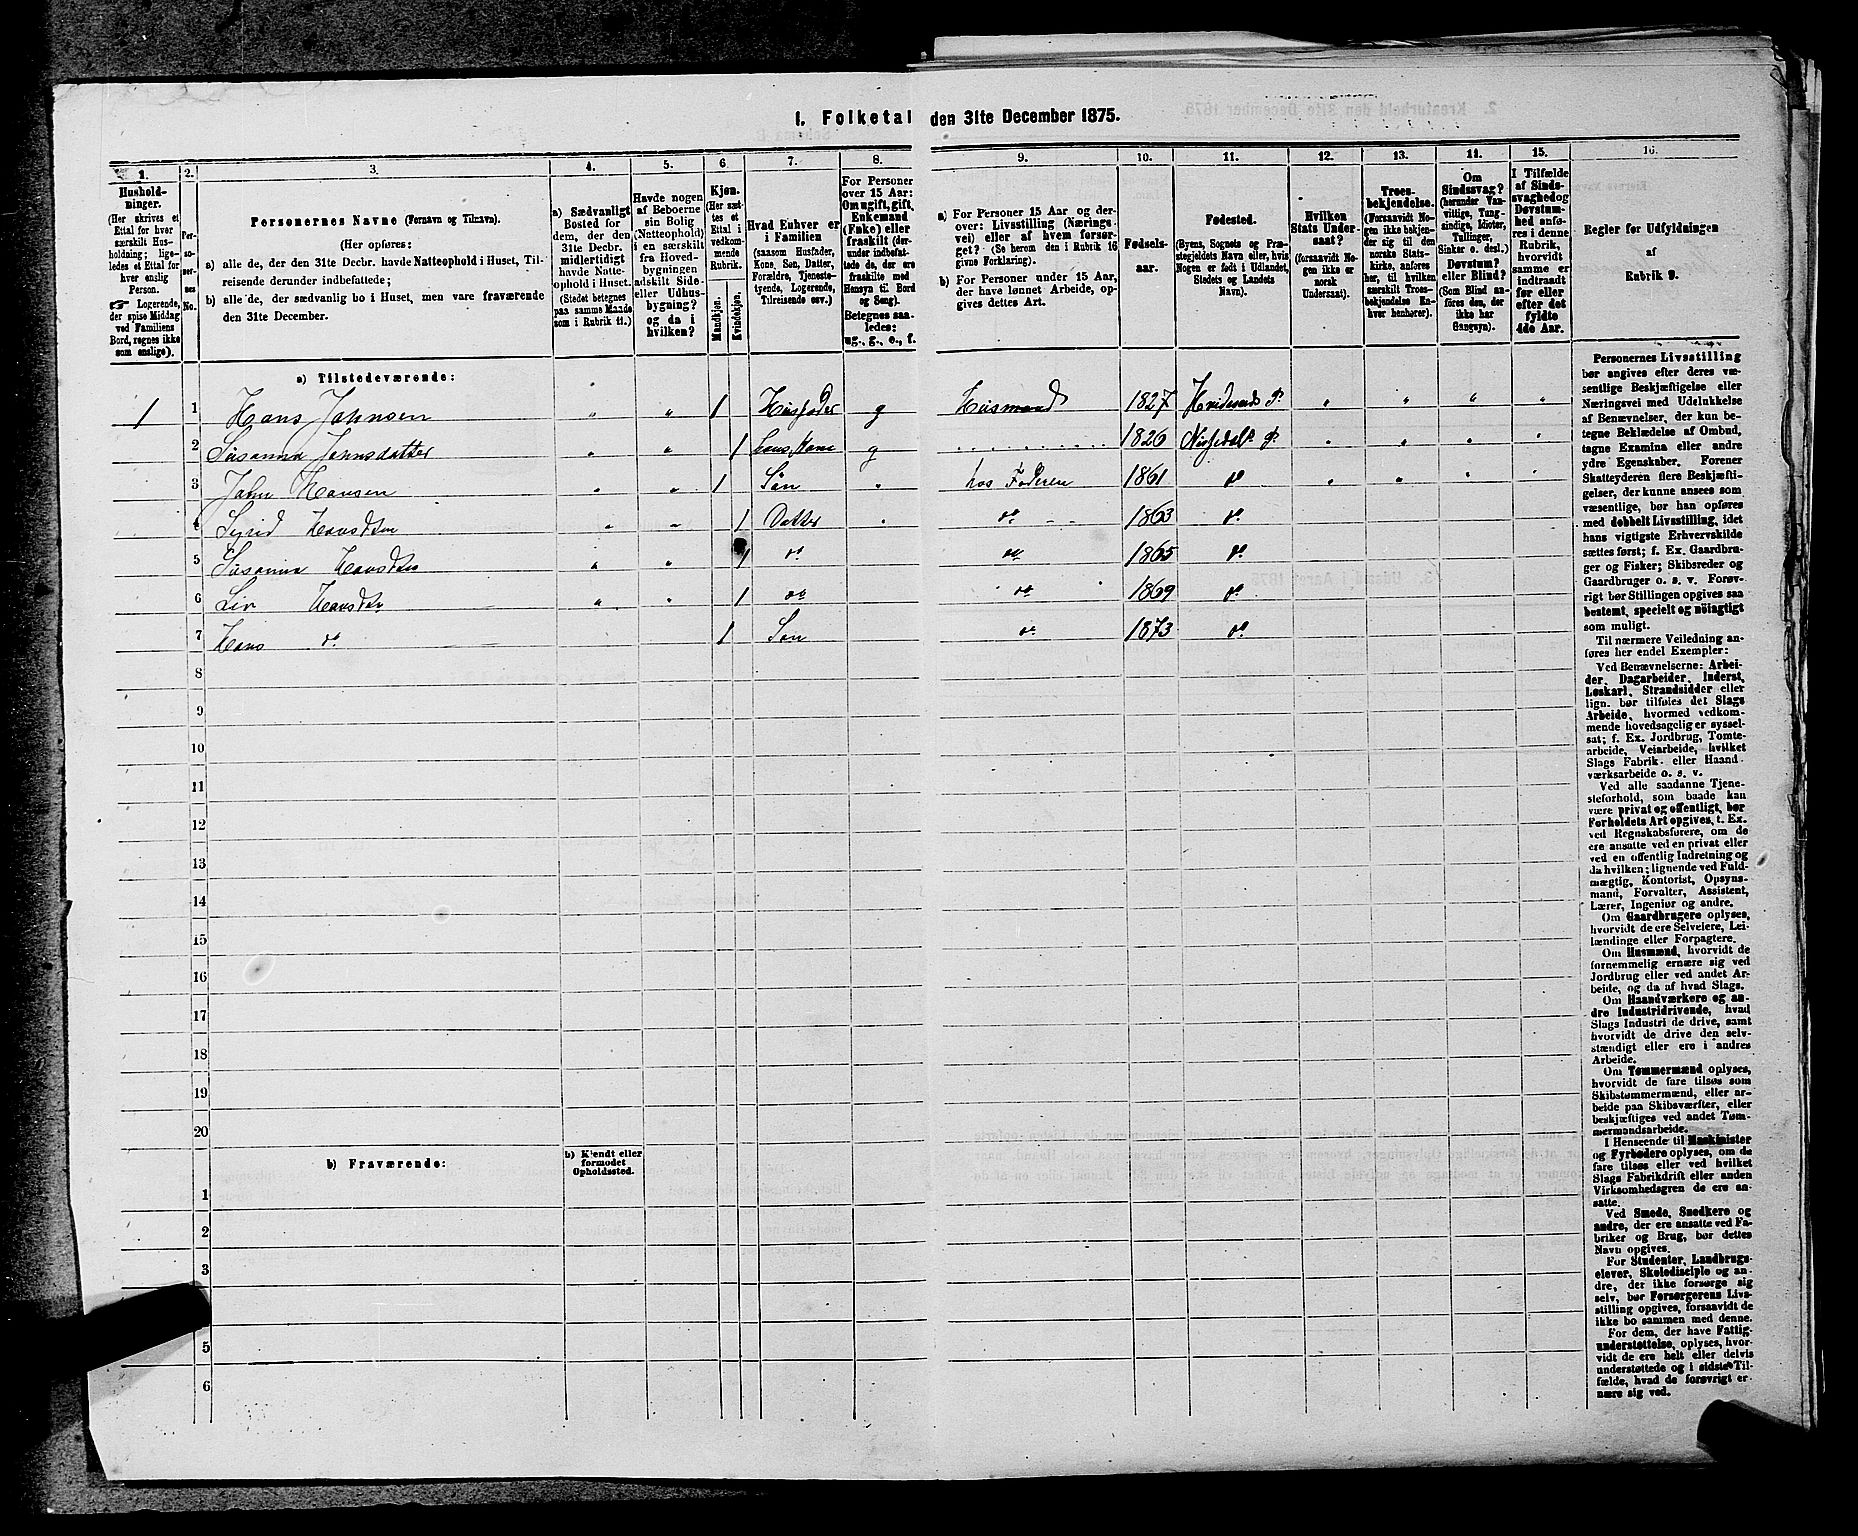 1. Folketal den 31te December 1875.
1. 2. 3. 4. 5. 6. 7. 8. 9. 10. 11. 12. 13. 14. 15. 16.
Husholdninger.
(Her skrives et
Ettal for hver
særskilt Husholdning;
ligeledes et Ettal for
hver enslig
Person.
☞ Logerende,
der spise Middag
ved Familiens
Bord, regnes ikke
som enslige).
Personernes No.
Personernes Navne (Fornavn og Tilnavn).
(Her opføres:
a) alle de, der den 31te Decbr. havde Natteophold i Huset, Tilreisende derunder indbefattede;
b) alle de, der sædvanlig bo i Huset, men vare fraværende
den 31te December.
a) Sædvanligt
Bosted for
dem, der den
31te Decbr.
midlertidigt
havde Natteophold i Huset.
(Stedet betegnes
paa samme Maade
som i Rubrik 11.)
Havde nogen
af Beboerne
sin Bolig
(Natteophold)
i en særskilt
fra Hovedbygningen
adskilt Side-
eller Udhusbygning?
og da i
hvilken?
Kjøn.
(Her sættes et
Ettal i
vedkommende
Rubrik.
Mandkjøn.
Kvindekjøn.
Hvad Enhver er
i Familien
(saasom Husfader,
Kone, Søn, Datter,
Forældre, Tjenestetyende, Logerende,
Tilreisende osv.)
For Personer
over 15 Aar:
Om ugift, gift,
Enkemand
(Enke) eller
fraskilt (derunder indbefattede de, der ere
fraskilte med
Hensyn til Bord
og Seng).
Betegnes saaledes:
ug., g., e., f.
a) For Personer 15 Aar og derover: Livsstilling (Næringsvei) eller af hvem forsørget? (Se herom den i Rubrik 16
givne Forklaring).
b) For Personer under 15 Aar,
der have lønnet Arbeide, opgives dettes Art.
Fødselsaar.
Fødested.
(Byens, Sognets og Præstegjeldets Navn eller, hvis
Nogen er født i Udlandet,
Stedets og Landets
Navn).
Hvilken
Stats Undersaat?
(forsaavidt Nogen ikke er
norsk
Undersaat).
Troesbekjendelse.
(Forsaavidt Nogen ikke bekjender sig til den
norske Statskirke, anføres
her, til hvilken
Troesbekjendelse Enhver henhører).
Om
Sindssvag?
(herunder Vanvittige, Tungsindige, Idioter,
Tullinger,
Sinker o. desl.).
Døvstum?
eller Blind?
(Som Blind anføres den, der
ikke har
Gangsyn).
I Tilfælde
af Sindssvaghed og
Døvstumhed anføres i denne
Rubrik,
hvorvidt
samme er
indtraadt
før eller
efter det
fyldte
4de Aar.
Regler for Udfyldningen
af
Rubrik 9.
a) Tilstedeværende:
1 1 Hans Johnsen „ „ 1 Husfader g Husmand 1827 Hvideseids P. „ „ „ „
2 Susanna Johnsdatter „ „ 1 hans Kone g 1826 Nissedals P. „ „ „ „
3 John Hansen „ „ 1 Søn „ hos Faderen 1861 do „ „ „ „
4 Sigrid Hansdtr „ „ 1 Datter „ do 1863 do
5 Susanna Hansdtr „ „ 1 do do 1865 do
6 Liv Hansdtr „ „ 1 do do 1869 do
7 Hans do 1 Søn do 1873 do
8
9
10
11
12
13
14
15
16
17
18
19
20
b) Fraværende:
b) Kjendt eller
formodet
Opholdssted.
1
2
3
5
6
Personernes Livsstilling
bør angives efter deres væsentlige Beskjæftigelse eller
Næringsvei med Udelukkelse
af Benævnelser, der kun betegne Beklædelse af Ombud,
tagne Examina eller andre
ydre Egenskaber. Forener
Skatteyderen flere Beskjæftigelser, der kunne ansees som
væsentlige, bør han opføres
med dobbelt Livsstilling, idet
hans vigtigste Erhvervskilde
sættes først; f. Ex. Gaardbruger og Fisker; Skibsreder og
Gaardbruger o. s. v. Forøvrigt bør Stillingen opgives saa
bestemt, specielt og nöiagtigt
som muligt.
Til nærmere Veiledning anføres her endel Exempler:
Ved Benævnelserne: Arbeider, Dagarbeider, Inderst,
Løskarl, Strandsidder eller
lign. bør tilføies det Slags
Arbeide, hvormed vedkommende hovedsagelig er sysselsat; f. Ex. Jordbrug, Tomtearbeide, Veiarbeide, hvilket
Slags Fabrik- eller Haandværksarbeide o. s. v.
Ved alle saadanne Tjenesteforhold, som baade kan
være privat og offentligt, bør
Forholdets Art opgives, t. Ex.
ved Regnskabsførere, om de
ere ansatte ved en privat eller
ved en offentlig Indretning og
da hvilken; lignende ved Fuldmægtig, Kontorist, Opsynsmand, Forvalter, Assistent,
Lærer, Ingeniør og andre.
Om Gaardbrugere oplyses,
hvorvidt de ere Selveiere, Leilændinge eller Forpagtere.
Om Husmænd, hvorvidt de
fornemmelig ernære sig ved
Jordbrug eller ved andet Arbeide, og da af hvad Slags.
Om Haandværkere og andre Industridrivende, hvad
Slags Industri de drive, samt
hvorvidt de drive den selvstændigt eller ere i andres
Arbeide.
Om Tømmermænd oplyses,
hvorvidt de fare tilsøs som
Skibstømmermænd, eller arbeide paa Skibsværfter, eller
beskjæftiges ved andet Tømmermandsarbeide.
I Henseende til Maskinister
og Fyrbødere oplyses, om de
fare tilsøs eller ved hvilket
Slags Fabrikdrift eller anden
Virksomhedsgren de ere ansatte.
Ved Smede, Snedkere og
andre, der ere ansatte ved Fabriker og Brug, bør dettes
Navn opgives.
For Studenter, Landbrugselever, Skoledisciple og andre, der ikke forsørge sig
selv, bør Forsørgerens Livsstilling opgives, forsaavidt de
ikke bo sammen med denne.
For dem, der have Fattigunderstøttelse, oplyses, hvorvidt de ere helt eller delvis
understøttede og i sidste Tilfælde, hvad de forøvrigt ernære sig ved.